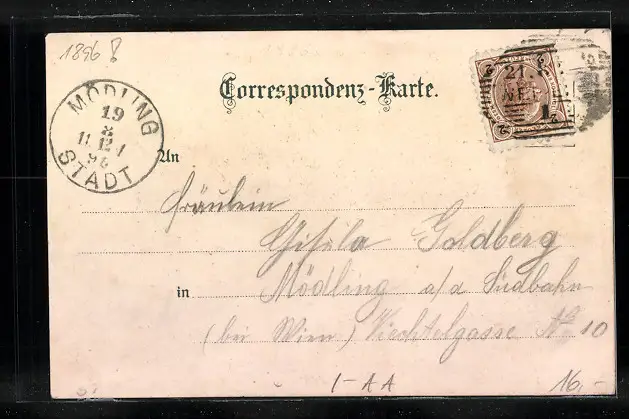 1896!
Correspondenz-Karte.
MÖDLING
19
8
11-12-V
96
STADT
21.
2
2
An
Fräulein
Gisela Goldberg
in Mödling a/d Südbahn
(bei Wien) Viechtelgasse No 10
1-AA
16,-